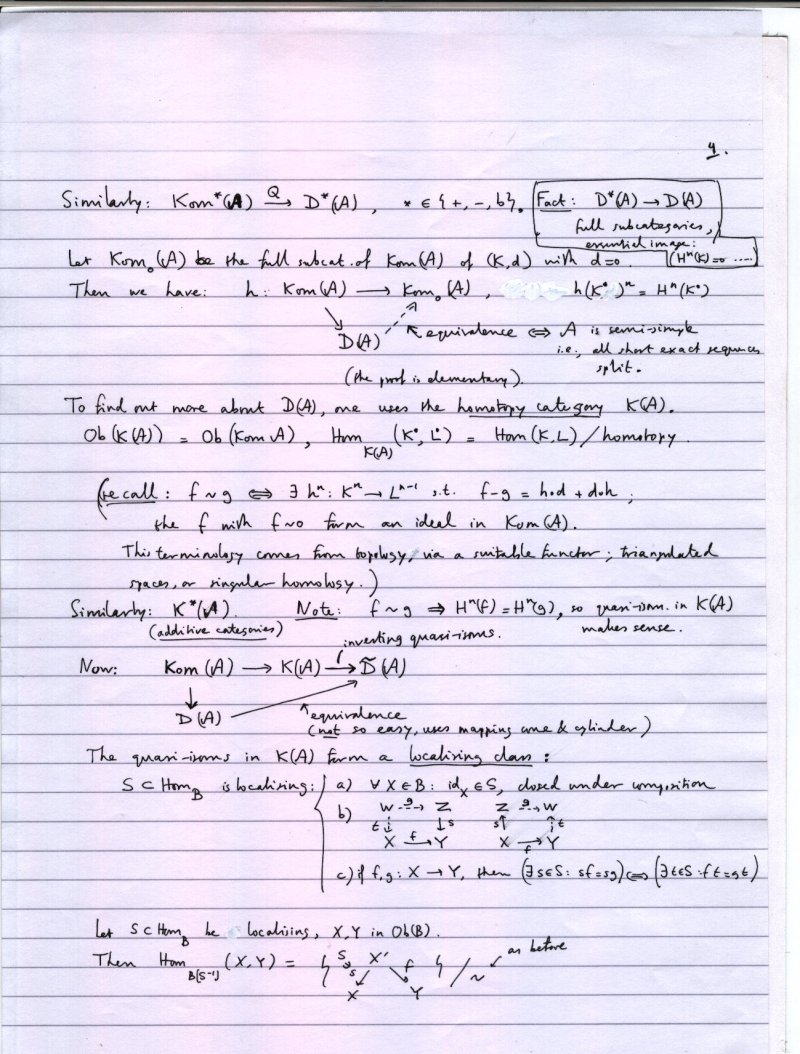 4.
Similarly: Kom*(A) →Q D*(A), * ∈ {+, −, b}. Fact: D*(A) → D(A)
full subcategories,
essential image:
Let Kom₀(A) be the full subcat. of Kom(A) of (K,d) with d=0. (Hⁿ(K)=0 .....
Then we have: h: Kom(A) → Kom₀(A), h(K•)ⁿ = Hⁿ(K•)
D(A) equivalence ⇔ A is semi-simple
i.e., all short exact sequences
split.
(the proof is elementary).
To find out more about D(A), one uses the homotopy category K(A).
Ob(K(A)) = Ob(Kom A), Hom_K(A) (K•, L•) = Hom(K,L)/homotopy.
(recall: f ~ g ⇔ ∃ hⁿ: Kⁿ → Lⁿ⁻¹ s.t. f−g = h∘d + d∘h ;
the f with f~0 form an ideal in Kom(A).
This terminology comes from topology, via a suitable functor ; triangulated
spaces, or singular homology.)
Similarly: K*(A). Note: f ~ g ⇒ Hⁿ(f) = Hⁿ(g), so quasi-isom. in K(A)
(additive categories) makes sense.
inverting quasi-isoms.
Now: Kom(A) → K(A) → D̃(A)
D(A) equivalence
(not so easy, uses mapping cone & cylinder)
The quasi-isoms in K(A) form a localising class :
S ⊂ Hom_B is localising: a) ∀ X ∈ B: id_X ∈ S, closed under composition
b) W --g--> Z Z --g--> W
t↓ ↓s s↑ ↑t
X →f Y X →f Y
c) if f,g: X → Y, then (∃ s∈S: sf=sg) ⇔ (∃ t∈S: ft=gt)
Let S ⊂ Hom_B be localising, X,Y in Ob(B).
as before
Then Hom_B[S⁻¹] (X,Y) = { S∋s X' f } / ~
X Y